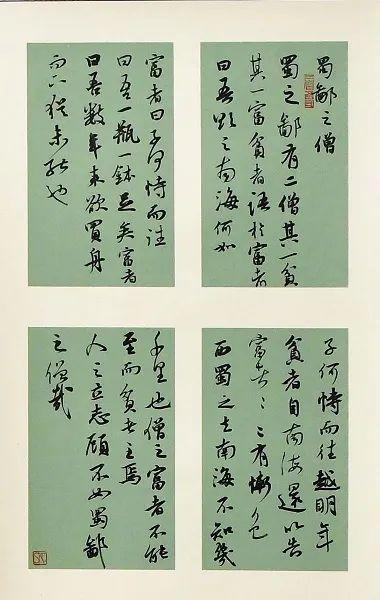 蜀鄙之僧
蜀之鄙有二僧其一貧
其一富貧者語於富者
曰吾欲之南海何如
富者曰子何恃而往
曰吾一瓶一鉢足矣富者
曰吾數年來欲買舟
而下猶未能也
子何恃而往越明年
貧者自南海還以告
富者〻〻有慚色
西蜀之去南海不知幾
千里也僧之富者不能
至而貧者至焉
人之立志顧不如蜀鄙
之僧哉